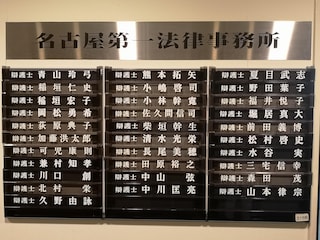 名古屋第一法律事務所
辯護士 青山玲弓
辯護士 稲垣仁史
辯護士 稲垣宏子
辯護士 岡松勇希
辯護士 荻原典子
辯護士 加藤洪太郎
辯護士 可児康則
辯護士 兼村知孝
辯護士 川口創
辯護士 北村栄
辯護士 久野由詠
辯護士 熊本拓矢
辯護士 小嶋啓司
辯護士 小林幹寛
辯護士 佐久間信司
辯護士 柴垣幹生
辯護士 清水光栄
辯護士 長尾美穂
辯護士 田原裕之
辯護士 中山弦
辯護士 中川匡亮
辯護士 夏目武志
辯護士 野田葉子
辯護士 福井悦子
辯護士 堀居真大
辯護士 前田義博
辯護士 松村啓史
辯護士 水谷実
辯護士 三宅信幸
辯護士 森田茂
辯護士 山本律宗